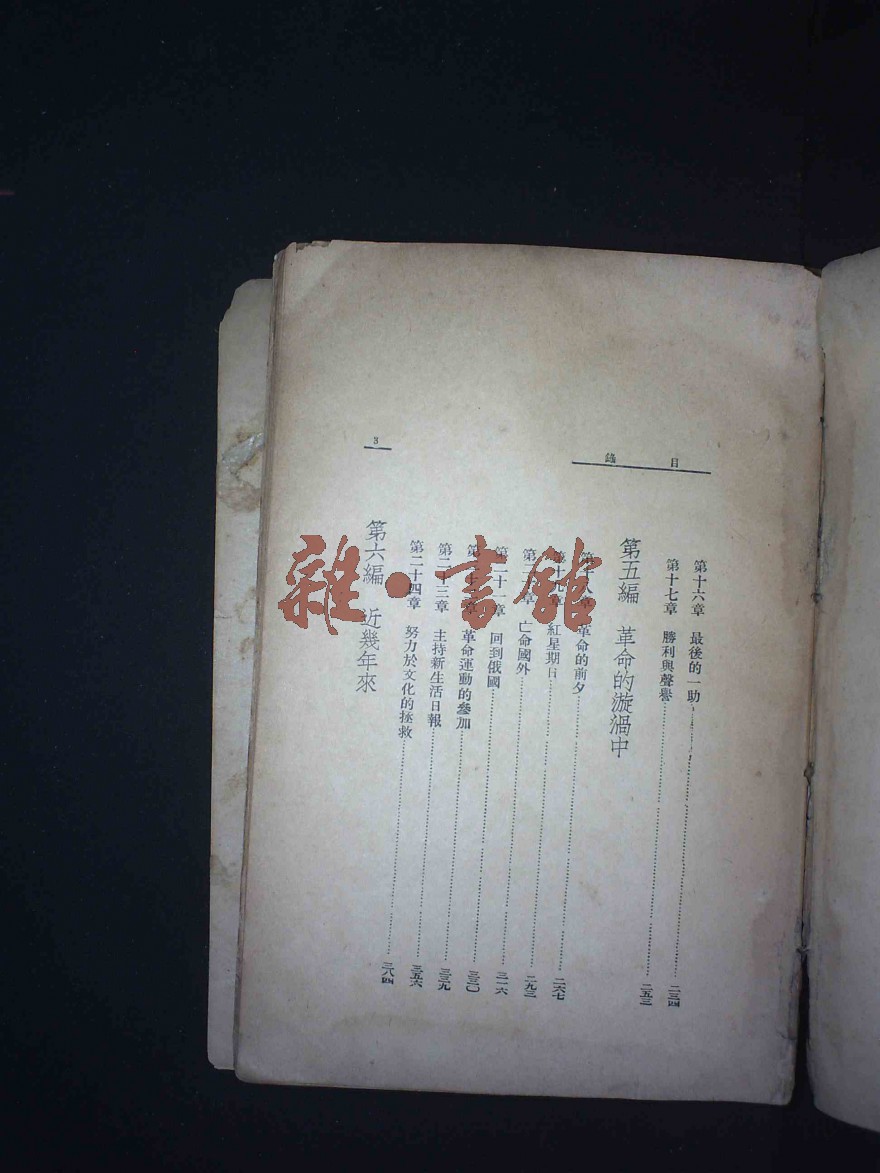 目錄
第十六章 最後的一助……二三四
第十七章 勝利與聲譽……二五三
第五編 革命的漩渦中
第十八章 革命的前夕……二六七
第十九章 紅星期日……二九三
第二十章 亡命國外……三一六
第二十一章 回到俄國……三三〇
第二十二章 革命運動的參加……三三九
第二十三章 主持新生活日報……三五六
第二十四章 努力於文化的拯救……三八四
第六編 近幾年來
3
雜·書館